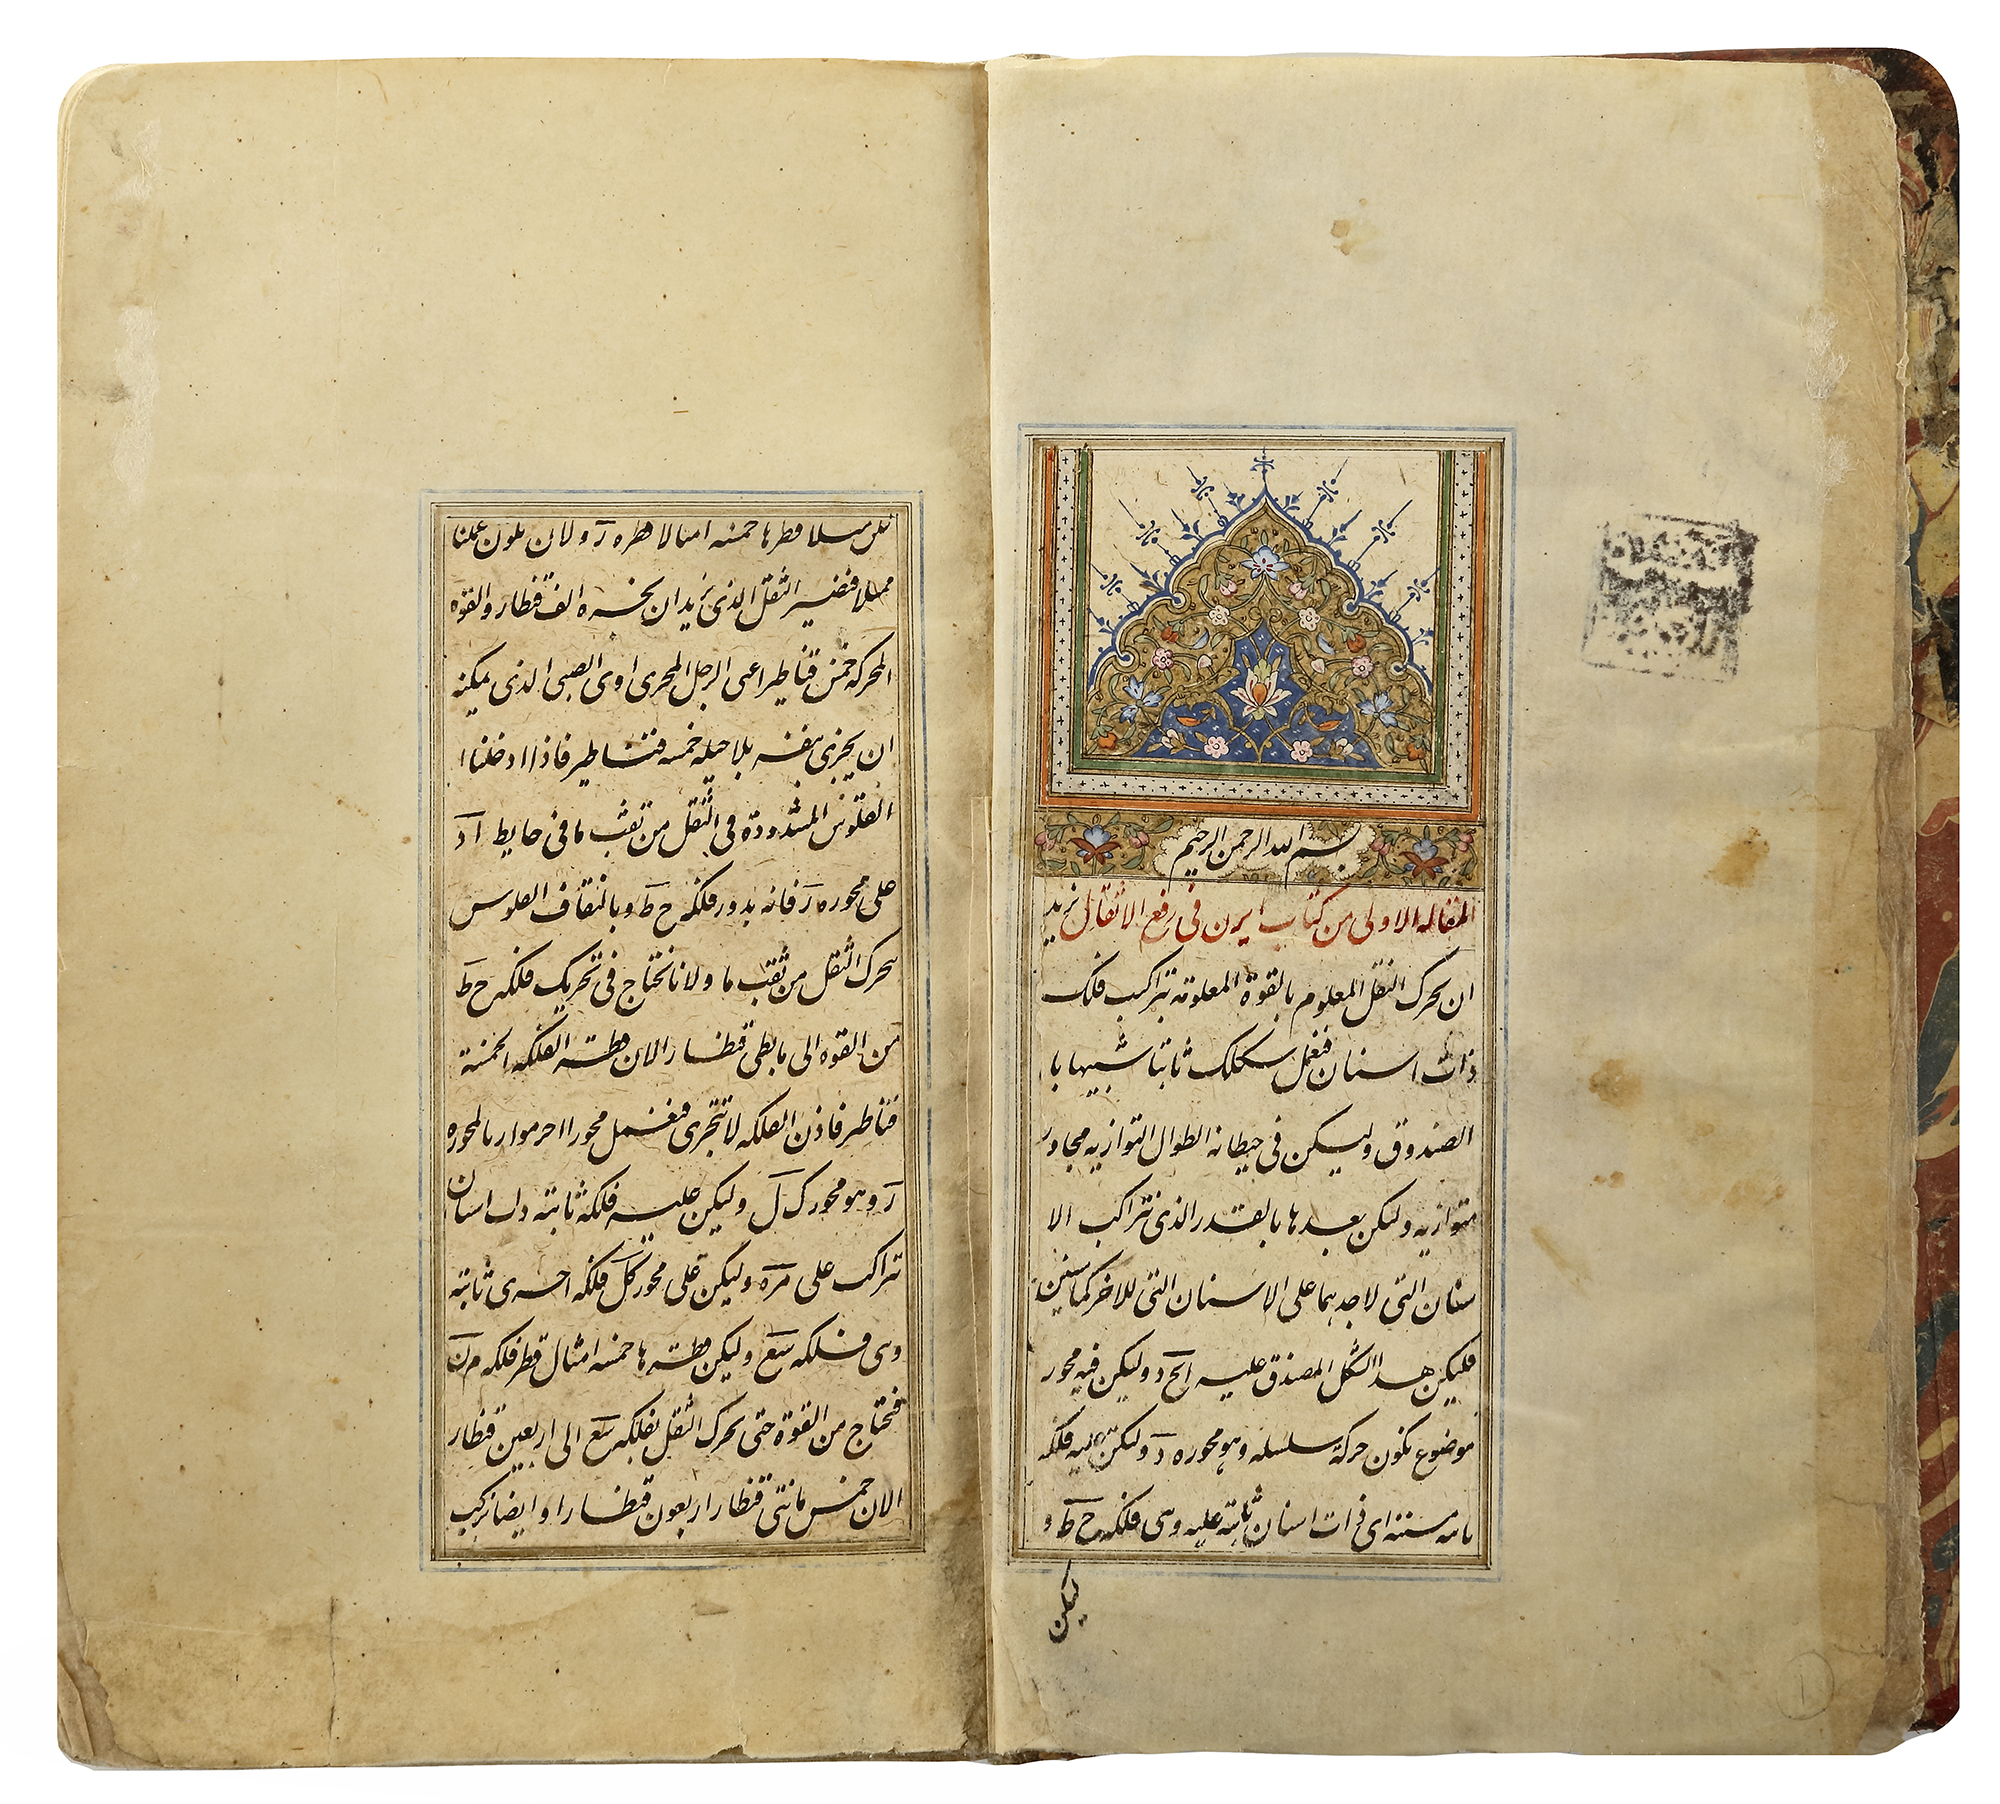 بسم الله الرحمن الرحيم
المقاله الاولى من كتاب ايرن فى رفع الاثقال نريد
ان نحرك الثقل المعلوم بالقوة المعلومه بتراكيب فلك
ذات اسنان فنعمل شكلا ثابتا شبيها با
لصندوق وليكن فى حيطانه الطوال المتوازيه محاور
متوازيه وليكن بعدها بالقدر الذى تتراكب الا
سنان التى لاحدهما على الاسنان التى للاخر كما سنبين
فليكن هذا الشكل المصندق عليه ابج د وليكن فيه محور
موضوع يكون حركة سلسله وهو محور ه د وليكن عليه فلكه
مسننه اى ذات اسنان ثابته عليه وهى فلكه ح ط و
ليكن
مثلا قطرها خمسه امثالا قطر ه ر ولان يكون عملنا
مثلا فنصير الثقل الذى نريد ان نجره الف قنطار والقوه
المحركه خمس قناطير اعنى الرجل المجرى اوى الصبى الذى يمكنه
ان يجرى بنفسه بلا حيله خمسه قناطير فاذا ادخلنا ا
لقلوس المشدودة فى الثقل من ثقب ما فى حايط اد
على محور ه ر فانه يدور فلكه ح ط وبالتفاف القلوس
يتحرك الثقل من ثقب ما ولانا نحتاج فى تحريك فلكه ح ط
من القوه الى مايطى قنطار الان قطر الفلكه الخمسة
قناطير فاذن الفلكه لا تتحرى فنعمل محورا اخر موازيا لمحور ه
ر وهو محور ك ل وليكن عليه فلكه ثابته ذات اسنان
تتراكب على م ره وليكن على محور كل فلكه اخرى ثابته
وهى فلكه سع وليكن قطرها خمسه امثال قطر فلكه م ن
فنحتاج من القوة حتى نحرك الثقل بفلكه سع الى اربعين قنطار
الان خمس مائتى قنطار اربعون قنطارا وايضا نركب